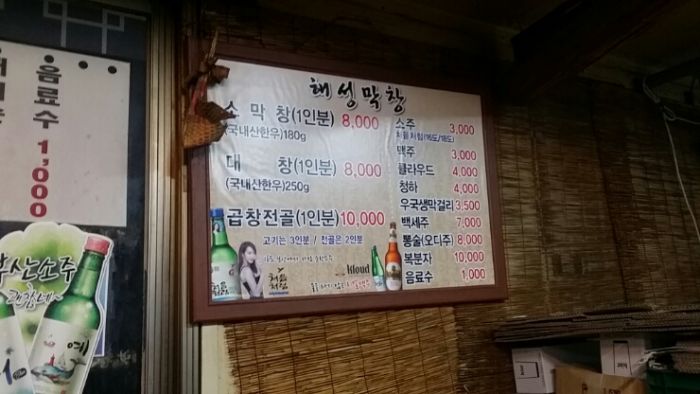 해성막창
소 막 창(1인분) 8,000
(국내산한우)180g
대 창(1인분) 8,000
(국내산한우)250g
곱창전골(1인분) 10,000
고기는 3인분 / 전골은 2인분
소주 3,000
처음처럼(16도/18도)
맥주 3,000
클라우드 4,000
청하 4,000
우국생막걸리 3,500
백세주 7,000
통술(오디주) 8,000
복분자 10,000
음료수 1,000
Kloud
음료수 1,000
부산소주
예